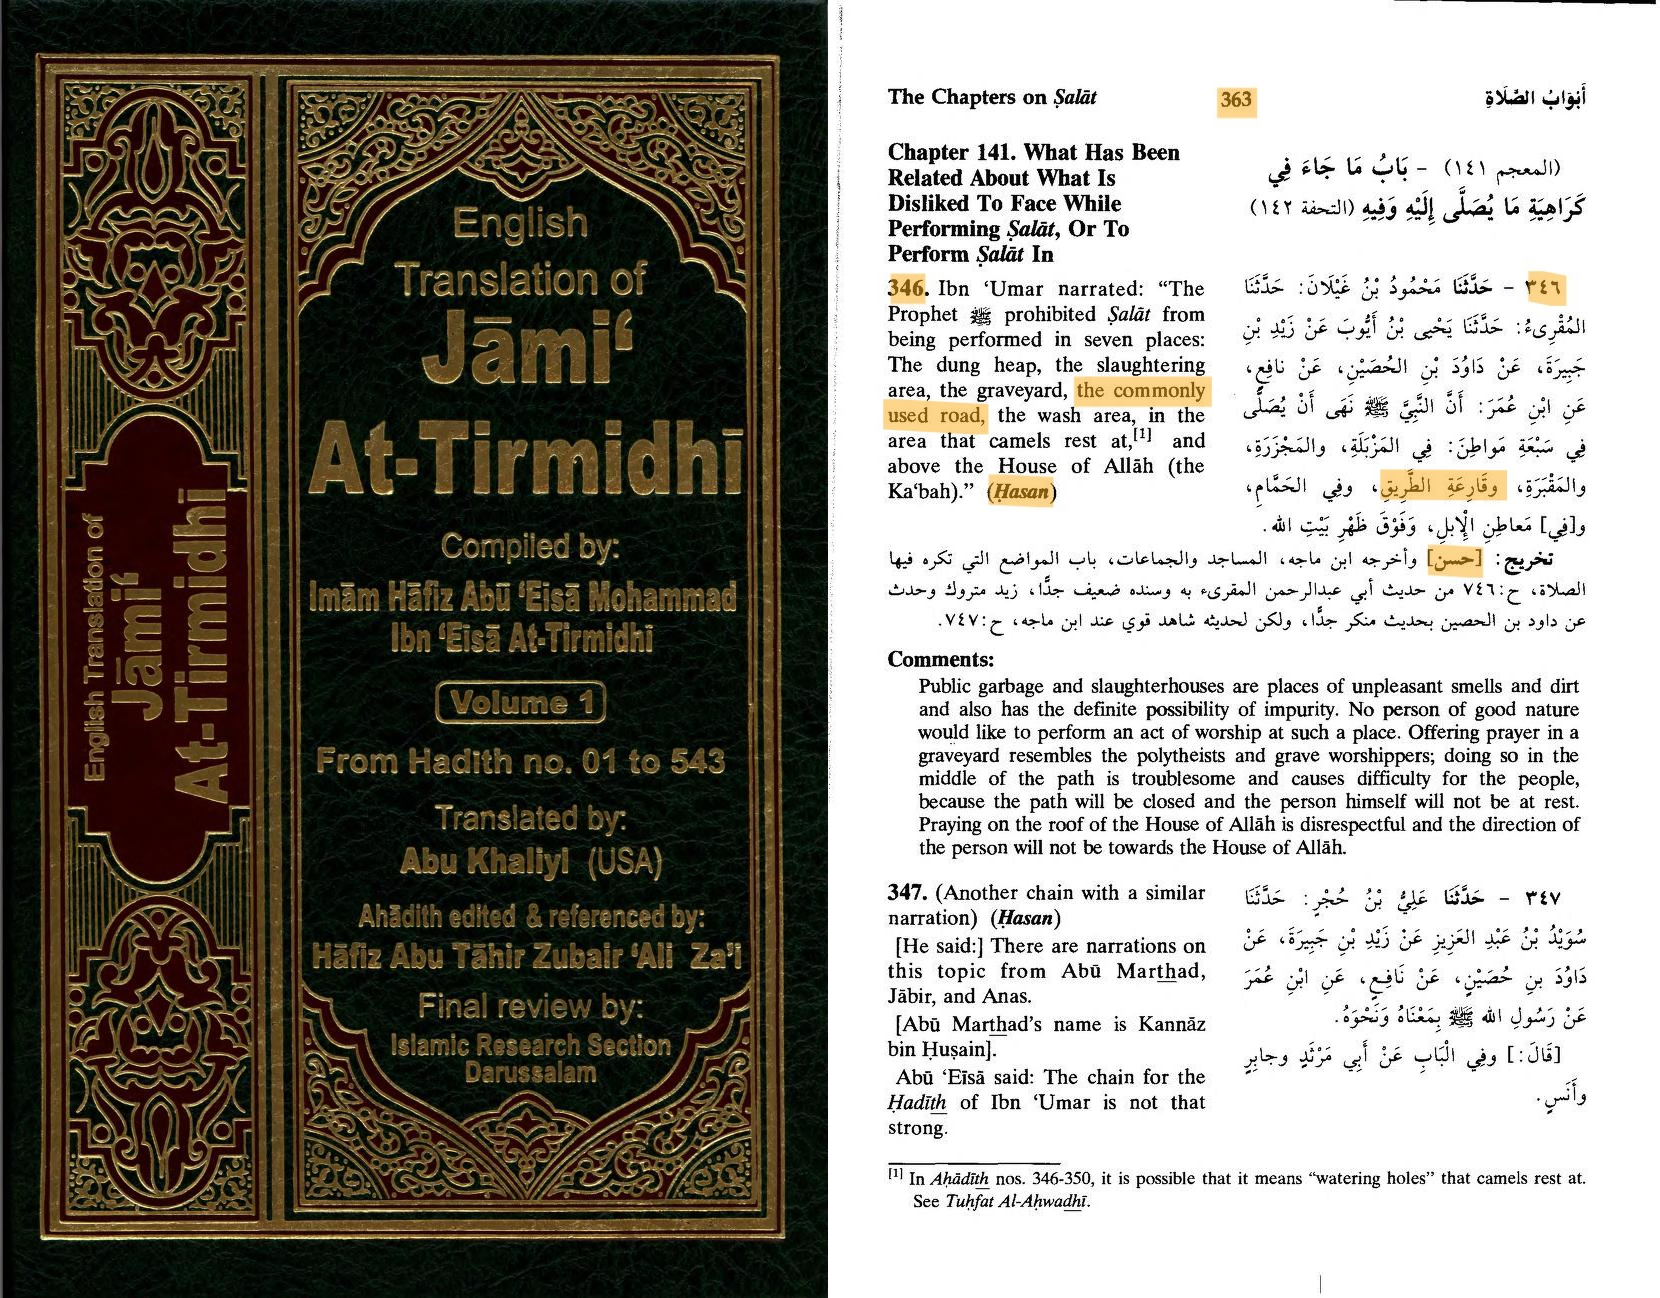 English Translation of
Jāmi‘
At-Tirmidhī
English
Translation of
Jāmi‘
At-Tirmidhī
Compiled by:
Imām Hāfiz Abū ‘Eisā Mohammad
Ibn ‘Eisā At-Tirmidhī
Volume 1
From Hadith no. 01 to 543
Translated by:
Abu Khaliyl (USA)
Ahādith edited & referenced by:
Hāfiz Abu Tāhir Zubair ‘Ali Za'i
Final review by:
Islamic Research Section
Darussalam
The Chapters on Ṣalāt 363 أَبْوَابُ الصَّلَاةِ
Chapter 141. What Has Been
Related About What Is
Disliked To Face While
Performing Ṣalāt, Or To
Perform Ṣalāt In
(المعجم ١٤١) - بَابُ مَا جَاءَ فِي
كَرَاهِيَةِ مَا يُصَلَّى إِلَيْهِ وَفِيهِ (التحفة ١٤٢)
346. Ibn ‘Umar narrated: “The
Prophet ﷺ prohibited Ṣalāt from
being performed in seven places:
The dung heap, the slaughtering
area, the graveyard, the commonly
used road, the wash area, in the
area that camels rest at,[1] and
above the House of Allāh (the
Ka‘bah).” (Ḥasan)
٣٤٦ - حَدَّثَنَا مَحْمُودُ بْنُ غَيْلَانَ: حَدَّثَنَا
المُقْرِىءُ: حَدَّثَنَا يَحْيى بْنُ أَيُّوبَ عَنْ زَيْدِ بْنِ
جَبِيرَةَ، عَنْ دَاوُدَ بْنِ الحُصَيْنِ، عَنْ نافِعٍ،
عَنِ ابْنِ عُمَرَ: أَنَّ النَّبِيَّ ﷺ نَهَى أَنْ يُصَلَّى
فِي سَبْعَةِ مَواطِنَ: فِي المَزْبَلَةِ، والمَجْزَرَةِ،
والمَقْبَرَةِ، وقَارِعَةِ الطَّرِيقِ، وفِي الحَمَّامِ،
و[فِي] مَعاطِنِ الْإِبلِ، وَفَوْقَ ظَهْرِ بَيْتِ الله.
تخريج: [حسن] وأخرجه ابن ماجه، المساجد والجماعات، باب المواضع التي تكره فيها
الصلاة، ح:٧٤٦ من حديث أبي عبدالرحمن المقرىء به وسنده ضعيف جدًّا، زيد متروك وحدث
عن داود بن الحصين بحديث منكر جدًّا، ولكن لحديثه شاهد قوي عند ابن ماجه، ح:٧٤٧.
Comments:
Public garbage and slaughterhouses are places of unpleasant smells and dirt
and also has the definite possibility of impurity. No person of good nature
would like to perform an act of worship at such a place. Offering prayer in a
graveyard resembles the polytheists and grave worshippers; doing so in the
middle of the path is troublesome and causes difficulty for the people,
because the path will be closed and the person himself will not be at rest.
Praying on the roof of the House of Allāh is disrespectful and the direction of
the person will not be towards the House of Allāh.
347. (Another chain with a similar
narration) (Ḥasan)
[He said:] There are narrations on
this topic from Abū Marthad,
Jābir, and Anas.
[Abū Marthad’s name is Kannāz
bin Ḥuṣain].
Abū ‘Eīsā said: The chain for the
Ḥadīth of Ibn ‘Umar is not that
strong.
٣٤٧ - حَدَّثَنَا عَلِيُّ بْنُ حُجْرٍ: حَدَّثَنَا
سُوَيْدُ بْنُ عَبْدِ العَزِيزِ عَنْ زَيْدِ بْنِ جَبِيرَةَ، عَنْ
دَاوُدَ بنِ حُصَيْنٍ، عَنْ نَافِعٍ، عَنِ ابْنِ عُمَرَ
عَنْ رَسُولِ الله ﷺ بِمَعْنَاهُ وَنَحْوَهُ.
[قَالَ:] وفِي الْبَابِ عَنْ أَبِي مَرْثَدٍ وجابِرٍ
وأَنَسٍ.
[1] In Aḥādīth nos. 346-350, it is possible that it means “watering holes” that camels rest at.
See Tuḥfat Al-Aḥwadhī.